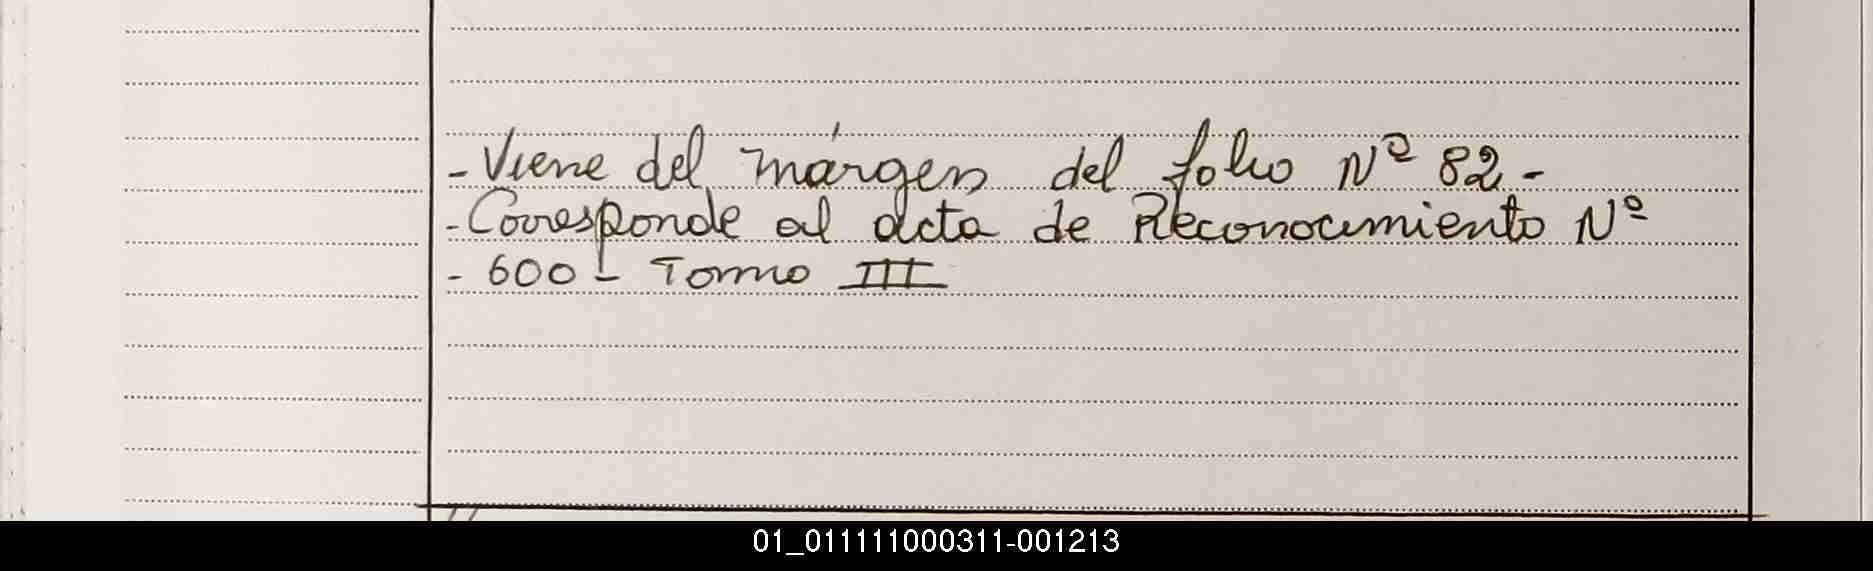 - Viene del márgen del folio Nº 82 -
- Corresponde al acta de Reconocimiento Nº
- 600 - Tomo III
01_011111000311-001213